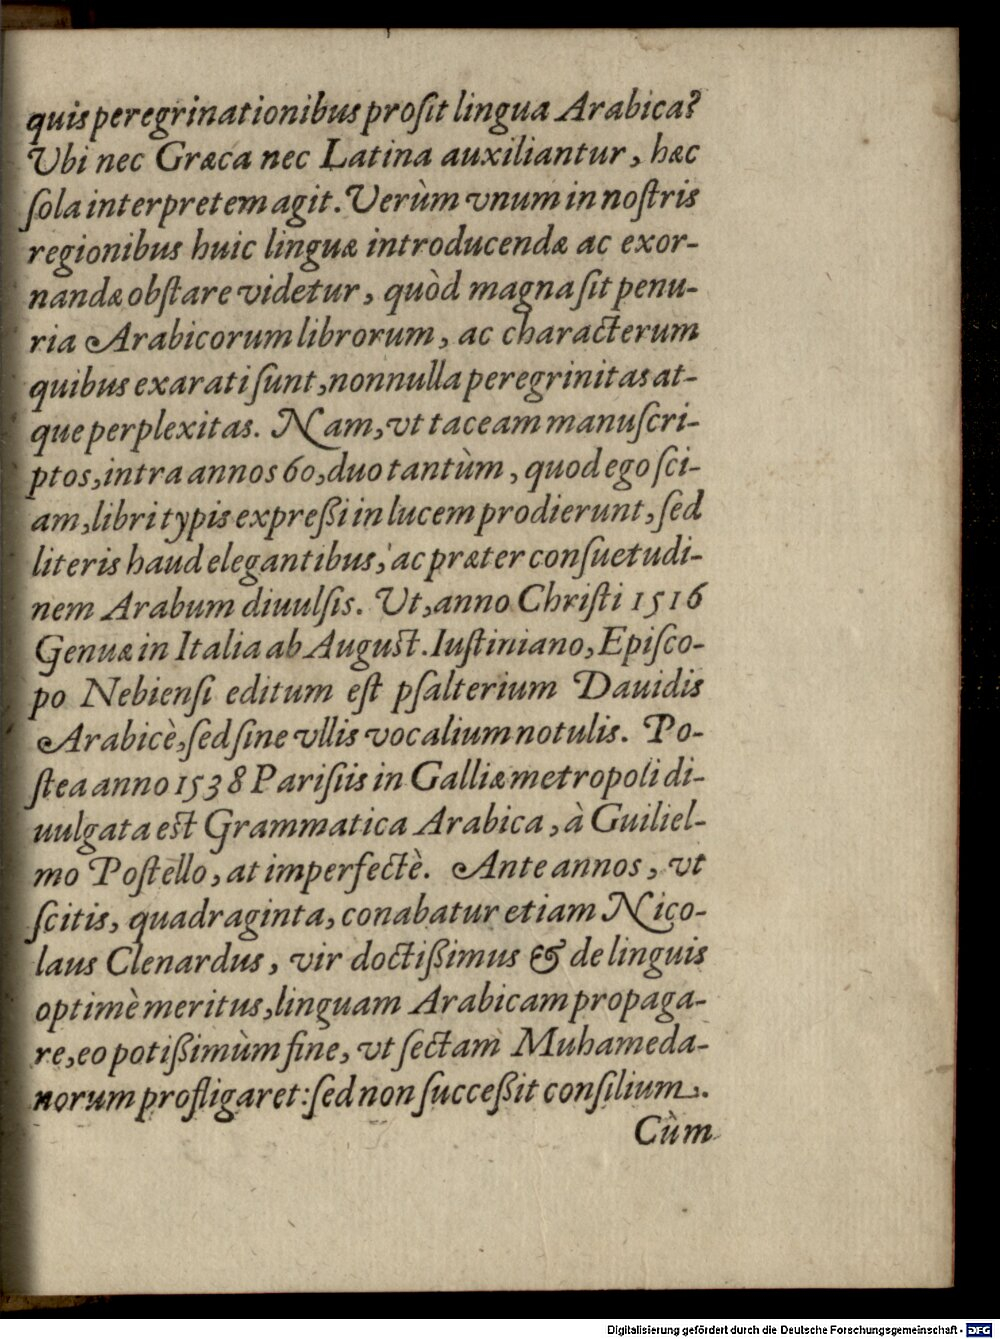 quis peregrinationibus proſit lingua Arabica?
Vbi nec Græca nec Latina auxiliantur, hæc
ſola interpretem agit. Verùm vnum in noſtris
regionibus huic linguæ introducendæ ac exor-
nandæ obſtare videtur, quòd magna ſit penu-
ria Arabicorum librorum, ac characterum
quibus exarati ſunt, nonnulla peregrinitas at-
que perplexitas. Nam, vt taceam manuſcri-
ptos, intra annos 60, duo tantùm, quod ego ſci-
am, libri typis expreßi in lucem prodierunt, ſed
literis haud elegantibus, ac præter conſuetudi-
nem Arabum diuulſis. Vt, anno Chriſti 1516
Genuæ in Italia ab Auguſt. Iuſtiniano, Epiſco-
po Nebienſi editum eſt pſalterium Dauidis
Arabicè, ſed ſine vllis vocalium notulis. Po-
ſtea anno 1538 Pariſiis in Galliæ metropoli di-
uulgata eſt Grammatica Arabica, à Guiliel-
mo Poſtello, at imperfectè. Ante annos, vt
ſcitis, quadraginta, conabatur etiam Nico-
laus Clenardus, vir doctißimus & de linguis
optimè meritus, linguam Arabicam propaga-
re, eo potißimùm fine, vt ſectam Muhameda-
norum profligaret: ſed non ſucceßit conſilium.
Cùm
Digitalisierung gefördert durch die Deutsche Forschungsgemeinschaft - DFG